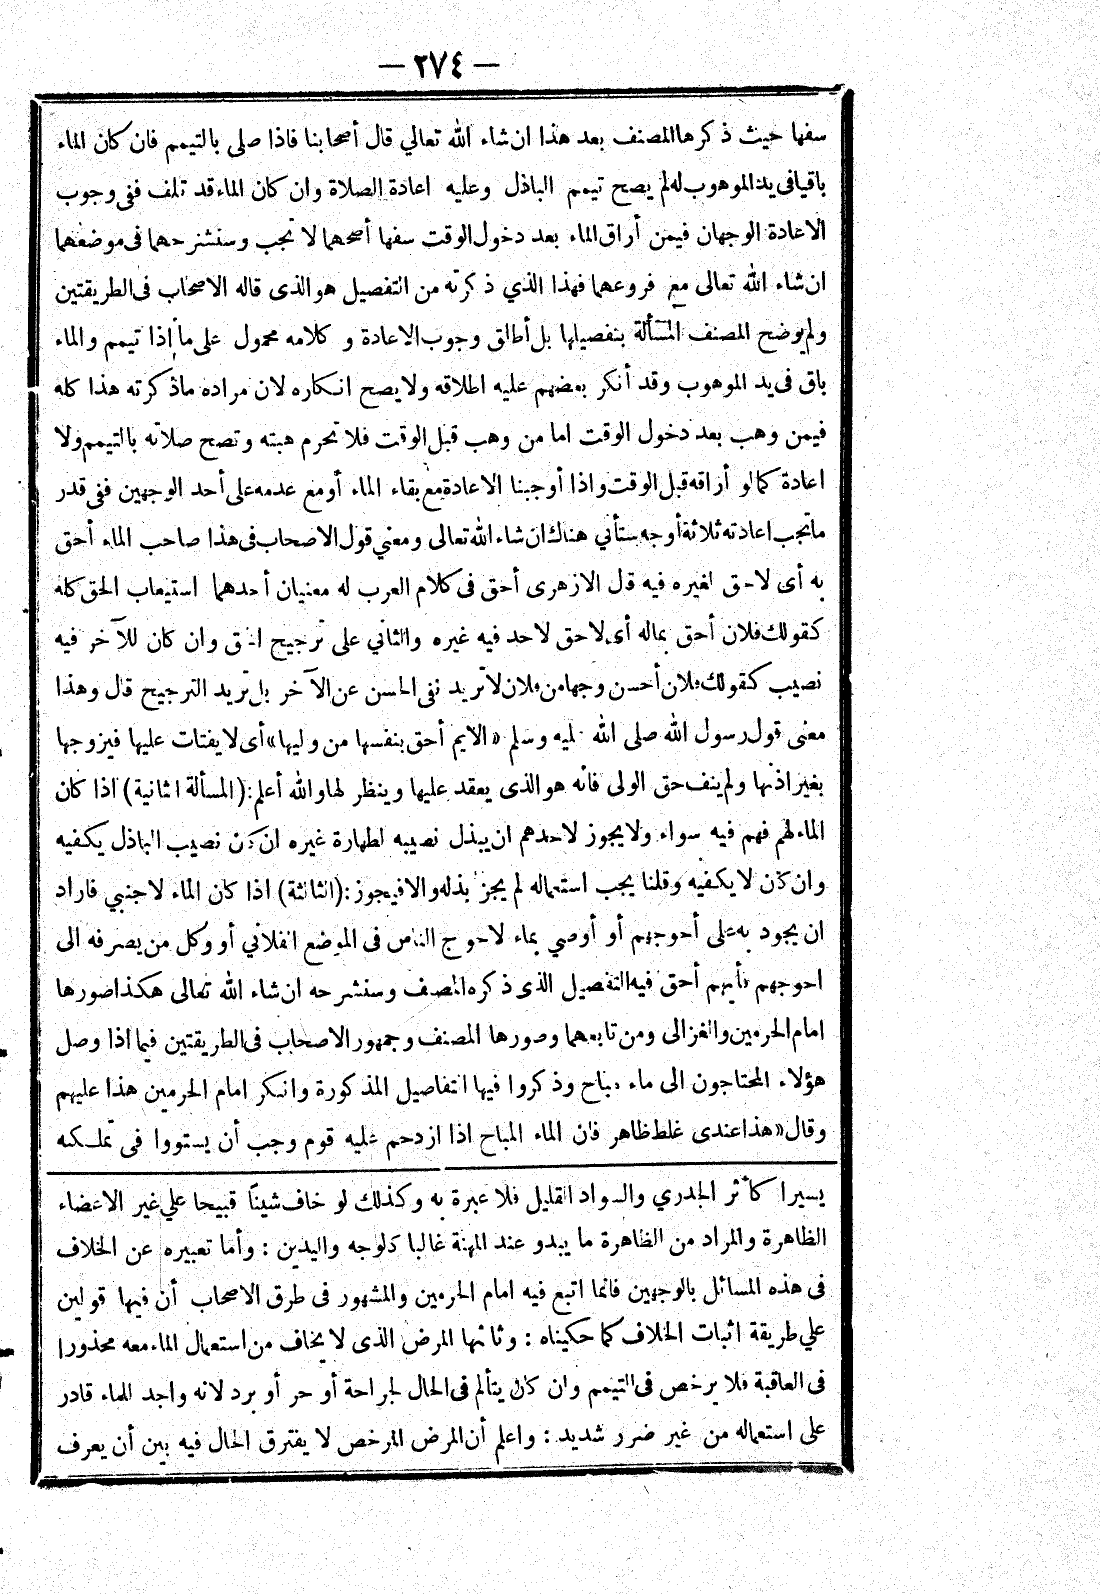 — ٢٧٤ —
سفها حيث ذكرها المصنف بعد هذا ان شاء الله تعالي قال أصحابنا فاذا صلى بالتيمم فان كان الماء
باقيا فى يد الموهوب له لم يصح تيمم الباذل وعليه اعادة الصلاة وان كان الماء قد تلف ففى وجوب
الاعادة الوجهان فيمن أراق الماء بعد دخول الوقت سفها أصحهما لا تجب وسنشرحهما فى موضعهما
ان شاء الله تعالى مع فروعهما فهذا الذي ذكرته من التفصيل هو الذى قاله الاصحاب فى الطريقتين
ولم يوضح المصنف المسألة بتفصيلها بل أطلق وجوب الاعادة وكلامه محمول على ما إذا تيمم والماء
باق فى يد الموهوب وقد أنكر بعضهم عليه اطلاقه ولا يصح انكاره لان مراده ماذكرته هذا كله
فيمن وهب بعد دخول الوقت اما من وهب قبل الوقت فلا تحرم هبته وتصح صلاته بالتيمم ولا
اعادة كما لو أراقه قبل الوقت واذا أوجبنا الاعادة مع بقاء الماء أو مع عدمه على أحد الوجهين ففى قدر
ما تجب اعادته ثلاثة أوجه ستأتي هناك ان شاء الله تعالى ومعني قول الاصحاب فى هذا صاحب الماء أحق
به أى لا حق لغيره فيه قال الازهرى أحق فى كلام العرب له معنيان أحدهما استيعاب الحق كله
كقولك فلان أحق بماله أى لا حق لاحد فيه غيره والثاني على ترجيح الحق وان كان للآخر فيه
نصيب كقولك فلان أحسن وجها من فلان لا تريد نفى الحسن عن الآخر بل تريد الترجيح قال وهذا
معنى قول رسول الله صلى الله عليه وسلم «الايم أحق بنفسها من وليها» أى لا يفتات عليها فيزوجها
بغير اذنها ولم ينف حق الولى فانه هو الذى يعقد عليها وينظر لها والله أعلم : (المسألة الثانية) اذا كان
الماء لهم فهم فيه سواء ولا يجوز لاحدهم ان يبذل نصيبه لطهارة غيره ان كان نصيب الباذل يكفيه
وان كان لا يكفيه وقلنا يجب استعماله لم يجز بذله والا فيجوز : (الثالثة) اذا كان الماء لاجنبي فاراد
ان يجود به على أحوجهم أو أوصي بماء لاحوج الناس فى الموضع الفلاني أو وكل من يصرفه الى
احوجهم فأيهم أحق فيه التفصيل الذى ذكره المصنف وسنشرحه ان شاء الله تعالى هكذا صورها
امام الحرمين والغزالى ومن تابعهما وصورها المصنف وجمهور الاصحاب فى الطريقتين فيما اذا وصل
هؤلاء المحتاجون الى ماء مباح وذكروا فيها التفاصيل المذكورة وانكر امام الحرمين هذا عليهم
وقال «هذا عندى غلط ظاهر فان الماء المباح اذا ازدحم عليه قوم وجب أن يستووا فى تملكه
يسيرا كأثر الجدري والسواد القليل فلا عبرة به وكذلك لو خاف شينًا قبيحا علي غير الاعضاء
الظاهرة والمراد من الظاهرة ما يبدو عند المهنة غالبا كالوجه واليدين : وأما تعبيره عن الخلاف
فى هذه المسائل بالوجهين فانما اتبع فيه امام الحرمين والمشهور فى طرق الاصحاب أن فيها قولين
علي طريقة اثبات الخلاف كما حكيناه : وثانيها المرض الذى لا يخاف من استعمال الماء معه محذورا
فى العاقبة فلا يرخص فى التيمم وان كان يتألم فى الحال لجراحة أو حر أو برد لانه واجد للماء قادر
على استعماله من غير ضرر شديد : واعلم أن المرض المرخص لا يفترق الحال فيه بين أن يعرف